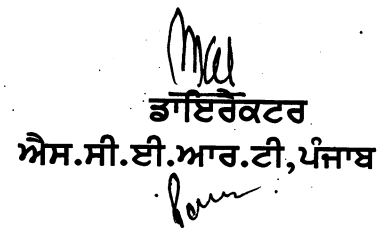 ਡਾਇਰੈਕਟਰ
ਐਸ.ਸੀ.ਈ.ਆਰ.ਟੀ,ਪੰਜਾਬ